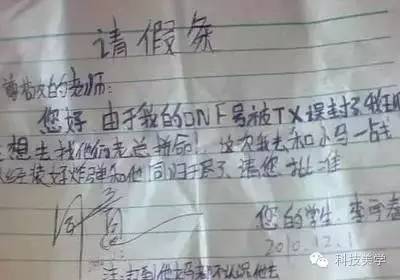 请假条
尊敬的老师:
您好 由于我的DNF号被TX误封了我现
想去找他们老总拼命!这次我去和小马一战
经装好炸弹和他同归于尽了 请您批准
您的学生:李
2010.12.1
注:
科技美学